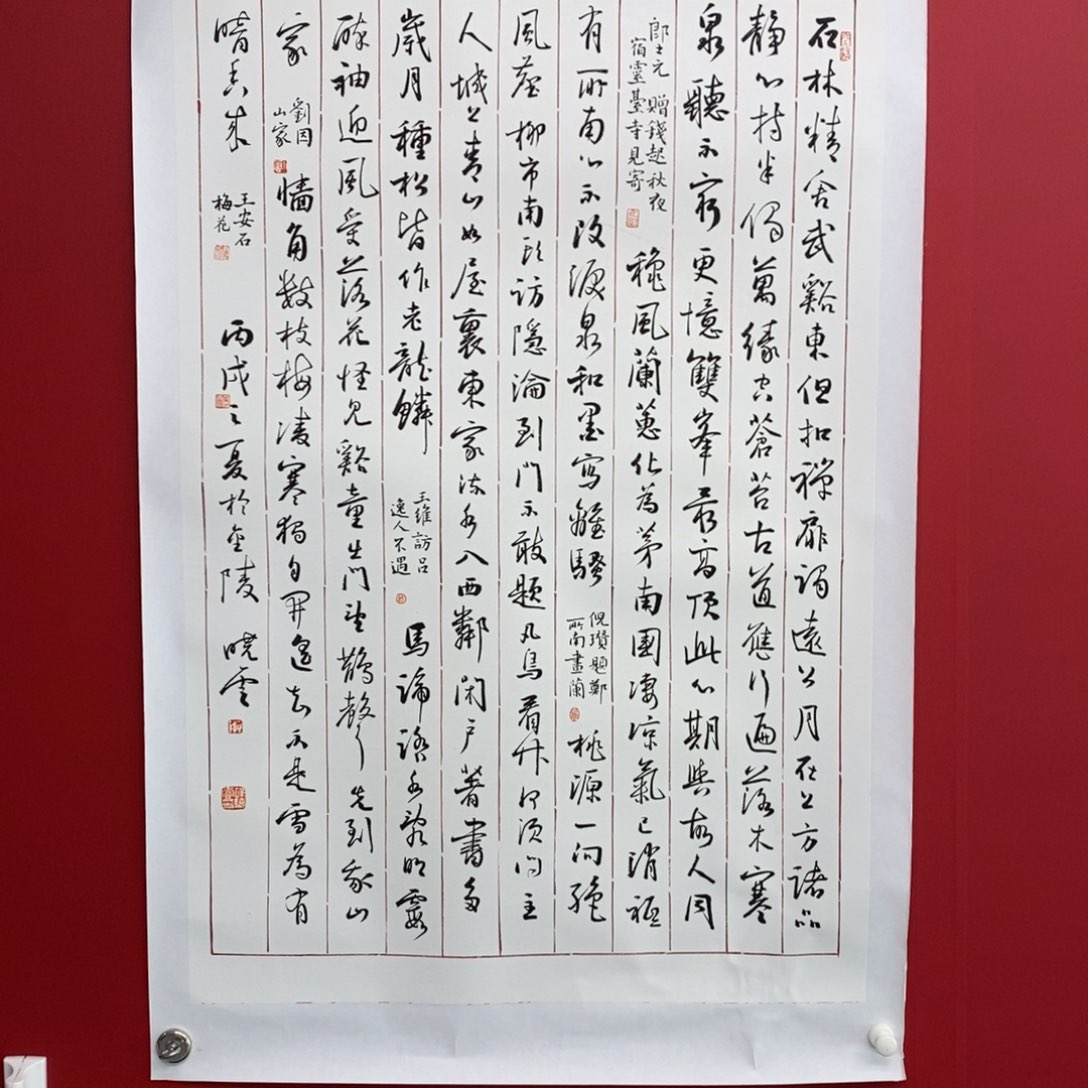 石林精舍武谿東但扣禪扉謁遠公月在上方諸品
靜心持半偈萬緣空蒼苔古道應行遍落木寒
泉聽不窮更憶雙峯最高頂此心期與故人同
郎士元 贈錢起秋夜
宿靈臺寺見寄
穐風蘭蕙化為茅南國淒涼氣已消秖
有所南心不改淚泉和墨寫離騷
倪瓚題鄭
所南畫蘭
桃源一向絕
風塵柳市南頭訪隱淪到門不敢題凡鳥看竹何須問主
人城上青山如屋裏東家流水入西鄰閉戶著書多
歲月種松皆作老龍鱗
王維 訪呂
逸人不遇
馬蹄踏水亂明霞
醉袖迎風受落花怪見谿童出門望鵲聲先到我山
家
劉因
山家
墻角數枝梅凌寒獨自開遙知不是雪為有
暗香來
王安石
梅花
丙戌之夏於金陵 曉雲